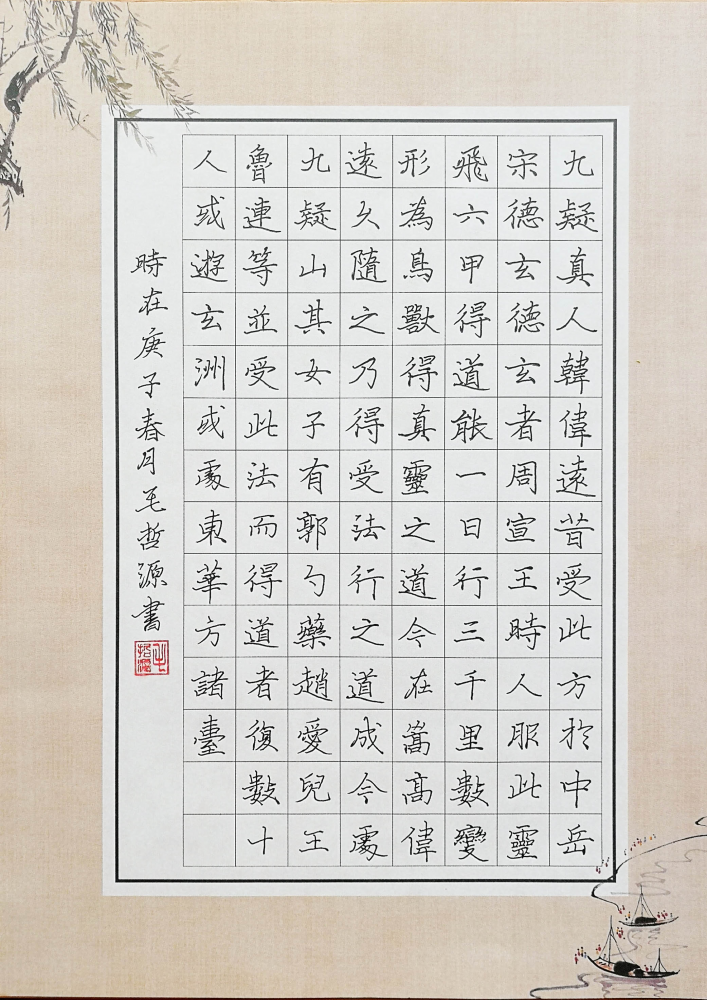 九疑真人韓偉遠昔受此方於中岳
宋德玄德玄者周宣王時人服此靈
飛六甲得道能一日行三千里數變
形為鳥獸得真靈之道今在嵩高偉
遠久隨之乃得受法行之道成今處
九疑山其女子有郭勺藥趙愛兒王
魯連等並受此法而得道者復數十
人或遊玄洲或處東華方諸臺
時在庚子春月毛哲源書